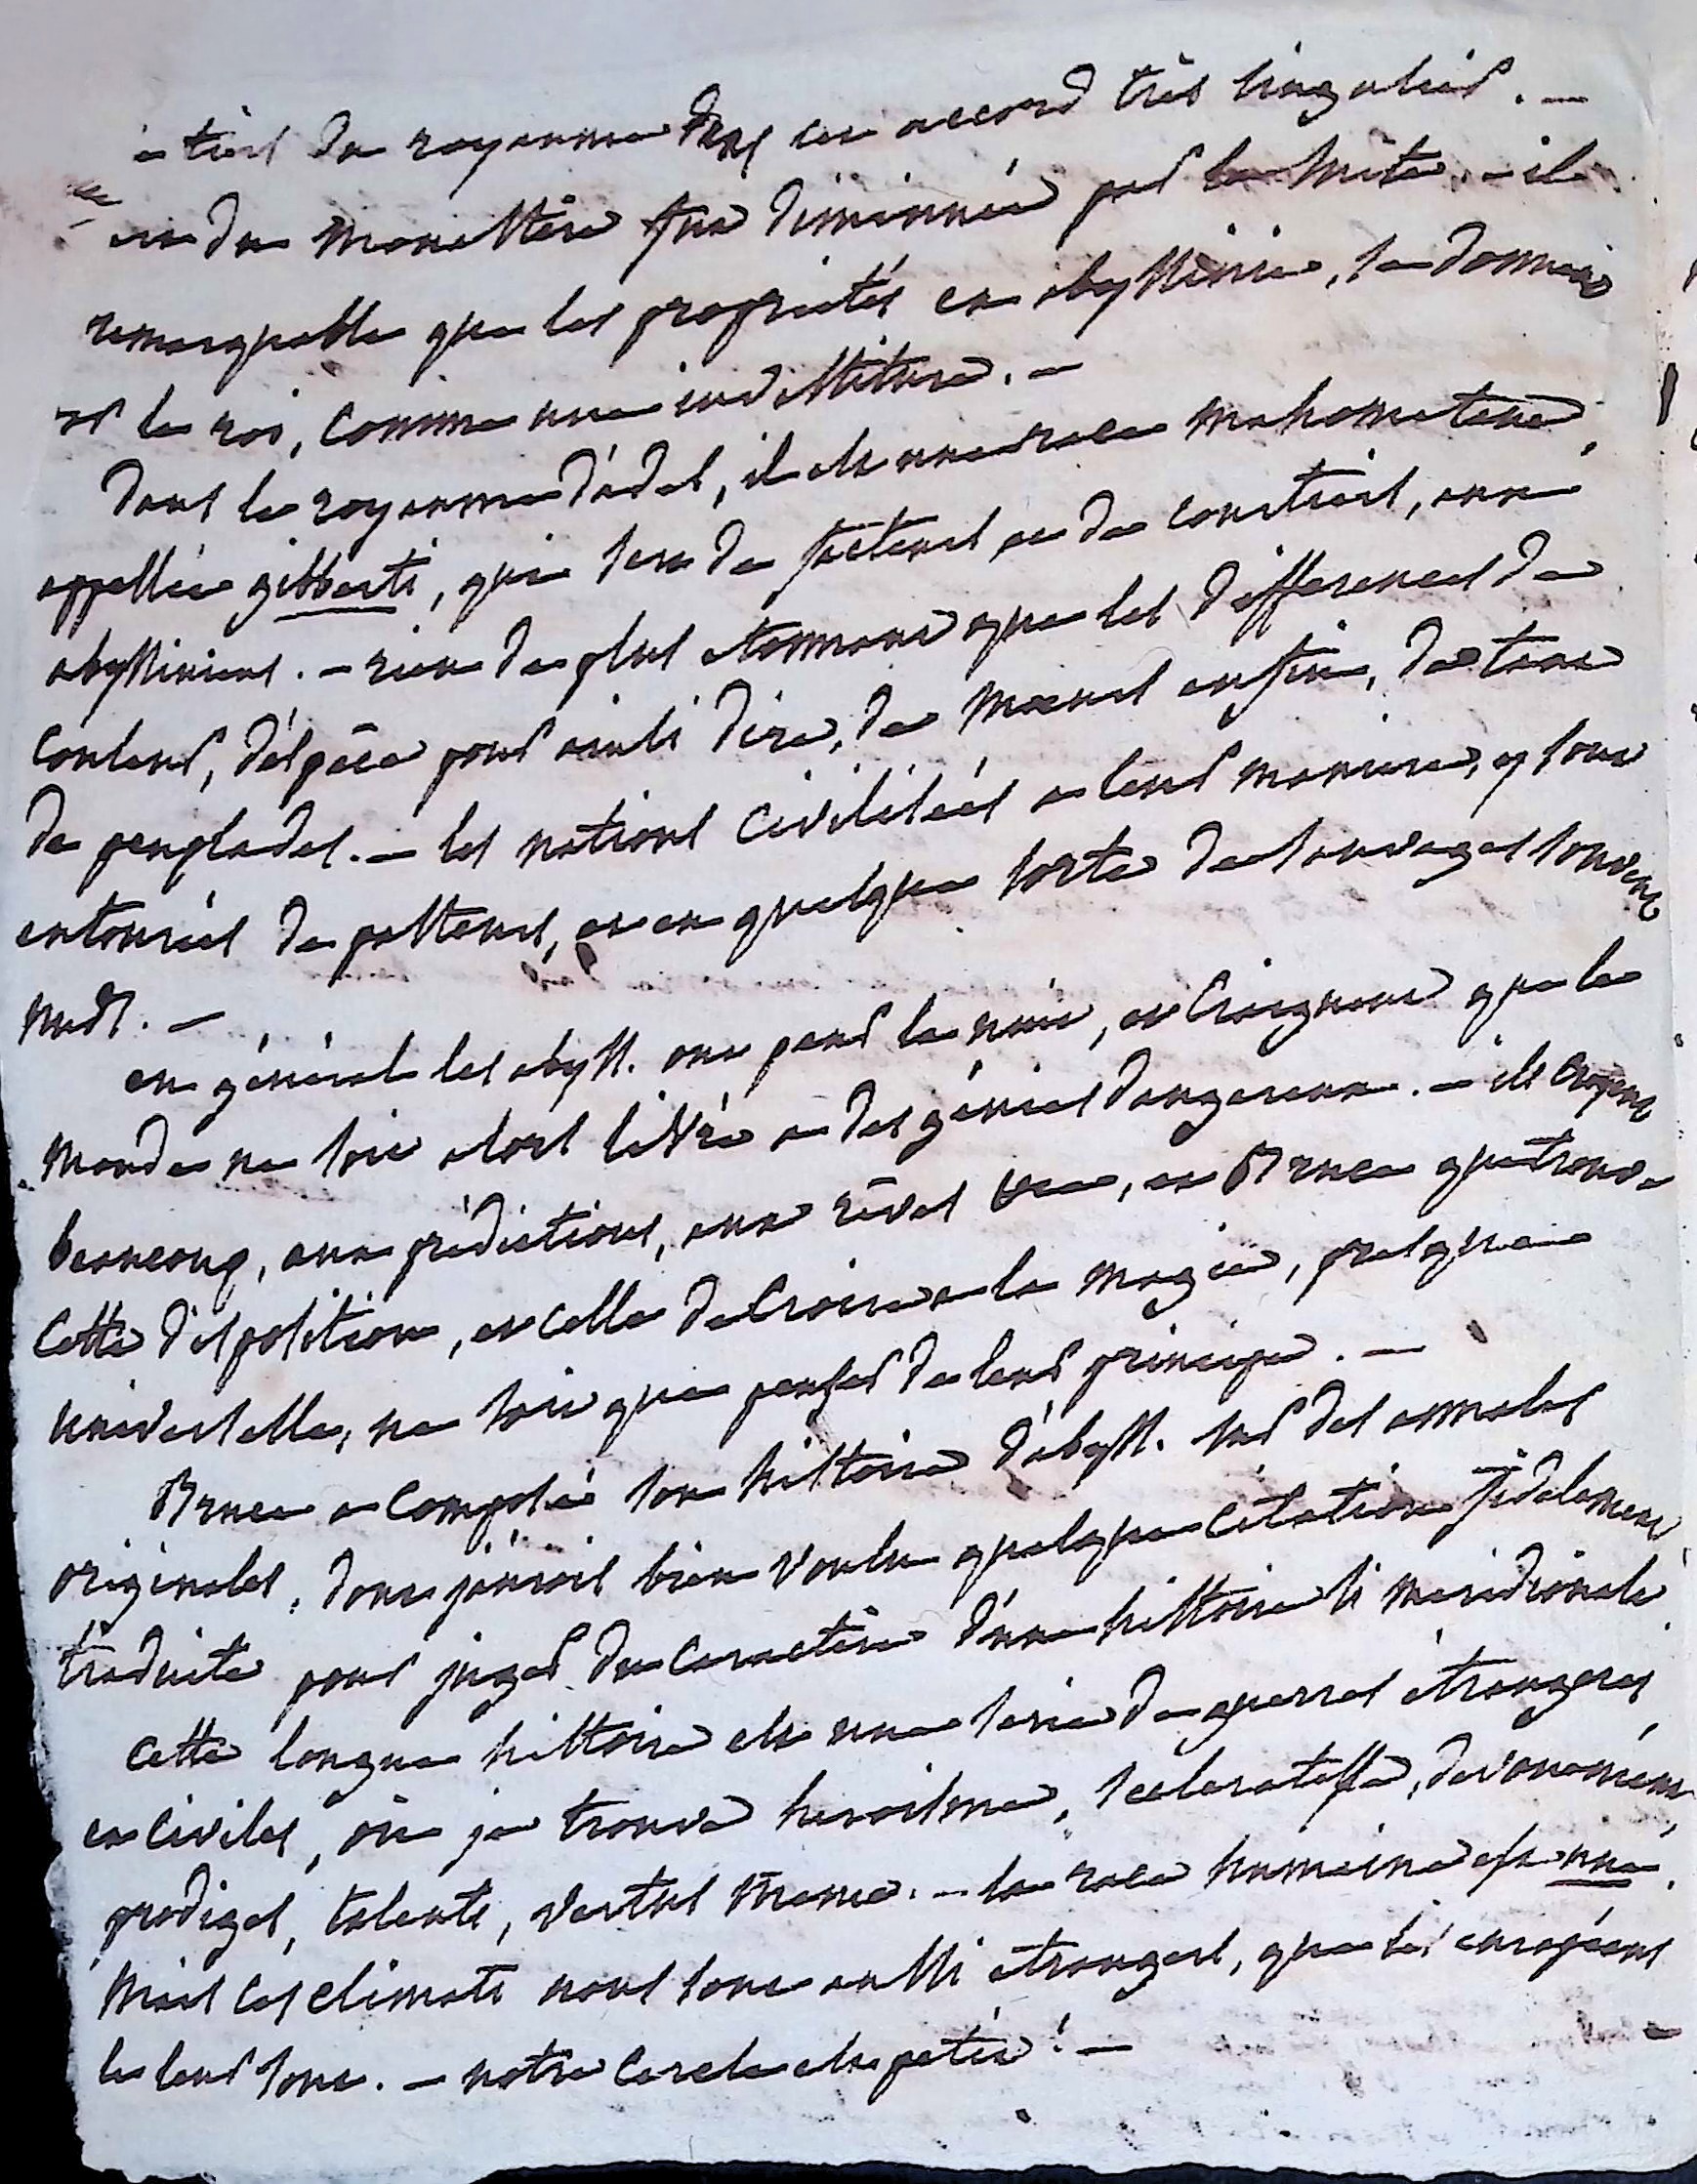 tiers du royaume dans cet accord très singulier. —
du monastère fut diminuée par la suite. — il
remarquable que les proprietés en abyssinie, se donnent
par le roi, comme une investiture. —
dans le royaume d'adel, il est une race mahometane,
appellée gibberti, qui sert de facteurs et de courtiers, aux
abyssiniens. — rien de plus etonnant que les differences de
couleur, d'espèce pour ainsi dire, de moeurs enfin, de tant
de peuplades. — les nations civilisées a leur maniere, y sont
entourées de pasteurs, et en quelque sorte de sauvages souvent
nuds. —
en général les abyss. ont peur la nuit, et craignent que le
monde ne soit alors livré a des génies dangereux. — ils croyent
beaucoup, aux prédictions, aux rêves, et Bruce qui trouve
cette disposition, et celle de croire a la magie, presque
universelle, ne sait que penser de leur principe. —
Bruce a composé son histoire d'abyss. sur des annales
originales, dont j'aurois bien voulu quelque citation fidelement
traduite pour juger du caractère d'une histoire si meridionale.
cette longue histoire est une serie de guerres étrangeres,
et civiles, où je trouve heroisme, scéleratesse, devouement,
prodiges, talents, vertus même. — la race humaine est une.
mais ces climats nous sont aussi etrangers, que les européens
le leur sont. — notre cercle est petit! —